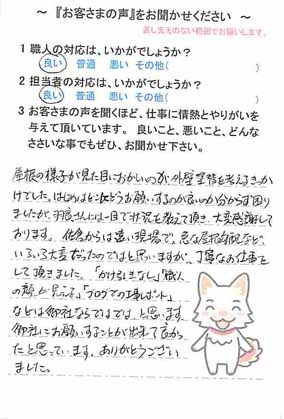 ～『お客さまの声』をお聞かせください ～
差し支えのない範囲でお願いします。
1 職人の対応は、いかがでしょうか?
良い 普通 悪い その他( )
2 担当者の対応は、いかがでしょうか?
良い 普通 悪い その他( )
3 お客さまの声を聞くほど、仕事に情熱とやりがいを
与えて頂いています。 良いこと、悪いこと、どんな
ささいな事でもぜひ、お聞かせ下さい。
屋根の様子が見た目におかしいのが、外壁塗装を考えるきっか
けでした。はじめはどこにどうお願いするのが良いのか分からず困り
ましたが、さんには一目で状況を教えて頂き、大変感謝して
おります。佐倉からは遠い現場で、急な屋根の対応など
いろいろ大変だったのではと思いますが、丁寧なお仕事を
して頂きました。「かけもちなし」「職人
の顔が見える」「ブログでの工事レポート」
などは御社ならではでは と思います。
御社にお願いすることが出来て良かっ
たと思っています。ありがとうござい
ました。